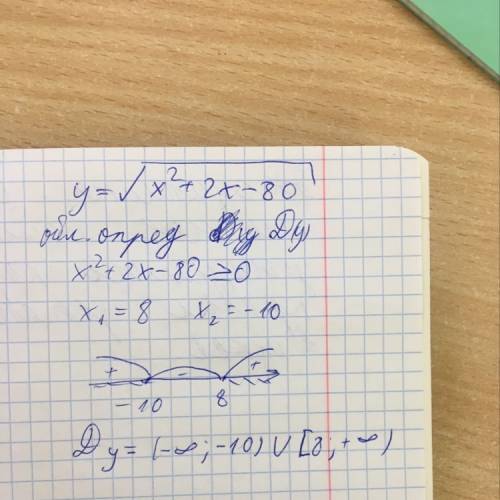 y = √(x² + 2x - 80)
обл. опред D(y)
x² + 2x - 80 ≥ 0
x₁ = 8 x₂ = -10
+ - +
-10 8
Dy = (-∞; -10) ∪ [8; +∞)